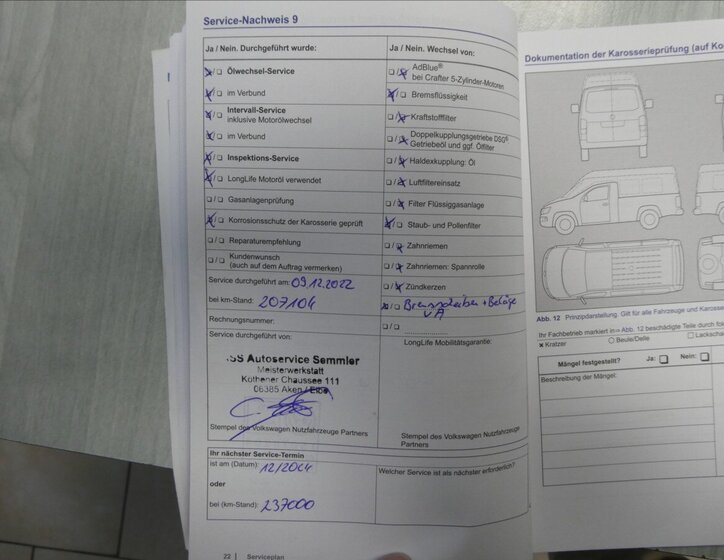 Service-Nachweis 9
Ja / Nein. Durchgeführt wurde:
Ölwechsel-Service
im Verbund
Intervall-Service
inklusive Motorölwechsel
im Verbund
Inspektions-Service
LongLife Motoröl verwendet
Gasanlagenprüfung
Korrosionsschutz der Karosserie geprüft
Reparaturempfehlung
Kundenwunsch
(auch auf dem Auftrag vermerken)
Service durchgeführt am: 09.12.2022
bei km-Stand: 207104
Rechnungsnummer:
Service durchgeführt von:
Autoservice Semmler
Meisterwerkstatt
Köthener Chaussee 111
06385 Aken / Elbe
Stempel des Volkswagen Nutzfahrzeuge Partners
Ja / Nein. Wechsel von:
AdBlue®
bei Crafter 5-Zylinder-Motoren
Bremsflüssigkeit
Kraftstofffilter
Doppelkupplungsgetriebe DSG®
Getriebeöl und ggf. Ölfilter
Haldexkupplung: Öl
Luftfiltereinsatz
Filter Flüssiggasanlage
Staub- und Pollenfilter
Zahnriemen
Zahnriemen: Spannrolle
Zündkerzen
Bremsscheiben + Beläge
VA
LongLife Mobilitätsgarantie:
Stempel des Volkswagen Nutzfahrzeuge Partners
Ihr nächster Service-Termin
ist am (Datum): 12/2024
oder
bei (km-Stand): 237000
Welcher Service ist als nächster erforderlich?
22 | Serviceplan
Dokumentation der Karosserieprüfung (auf Ko
Abb. 12 Prinzipdarstellung. Gilt für alle Fahrzeuge und Karosse
Ihr Fachbetrieb markiert in ⇒ Abb. 12 beschädigte Teile durch
x Kratzer
Beule/Delle
Lackscha
Mängel festgestellt? Ja: Nein:
Beschreibung der Mängel: